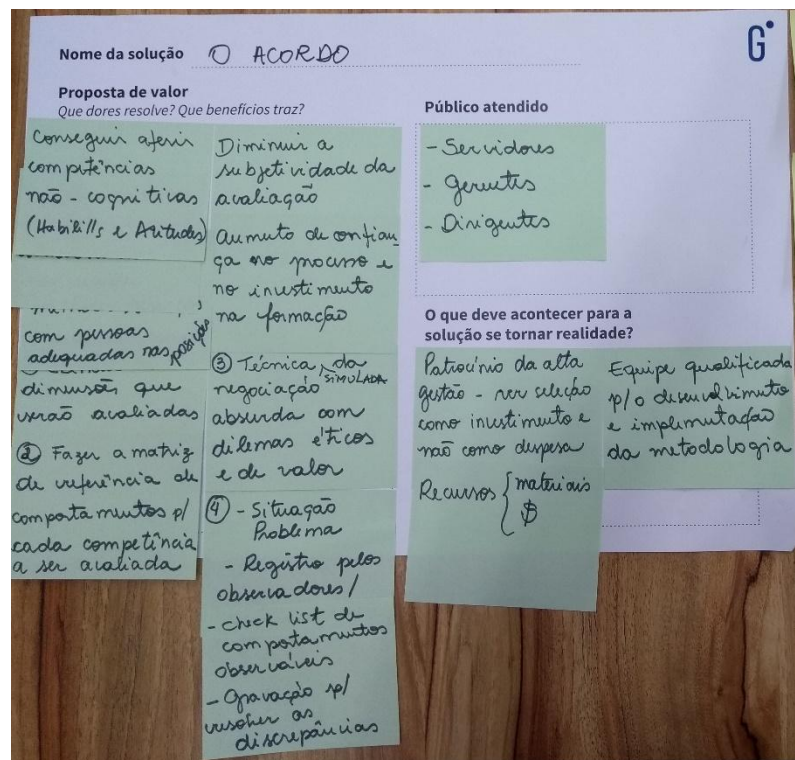 G
Nome da solução O ACORDO
Proposta de valor
Que dores resolve? Que benefícios traz?
Conseguir aferir
competências
não-cognitivas
(Habili//s e Atitudes)
com pessoas
adequadas nas posições
dimensões que
serão avaliadas
② Fazer a matriz
de referência de
comportamentos p/
cada competência
a ser avaliada
Diminuir a
subjetividade da
avaliação
Aumento de confian-
ça no processo e
no investimento
na formação
③ Técnica da
negociação SIMULADA
absurda com
dilemas éticos
e de valor
④ - Situação
Problema
- Registro pelos
observadores/
- check list de
comportamentos
observáveis
- Gravação p/
resolver as
discrepâncias
Público atendido
- Servidores
- Gerentes
- Dirigentes
O que deve acontecer para a
solução se tornar realidade?
Patrocínio da alta
gestão - ver seleção
como investimento e
não como despesa
Recursos { materiais
$
Equipe qualificada
p/ o desenvolvimento
e implementação
da metodologia